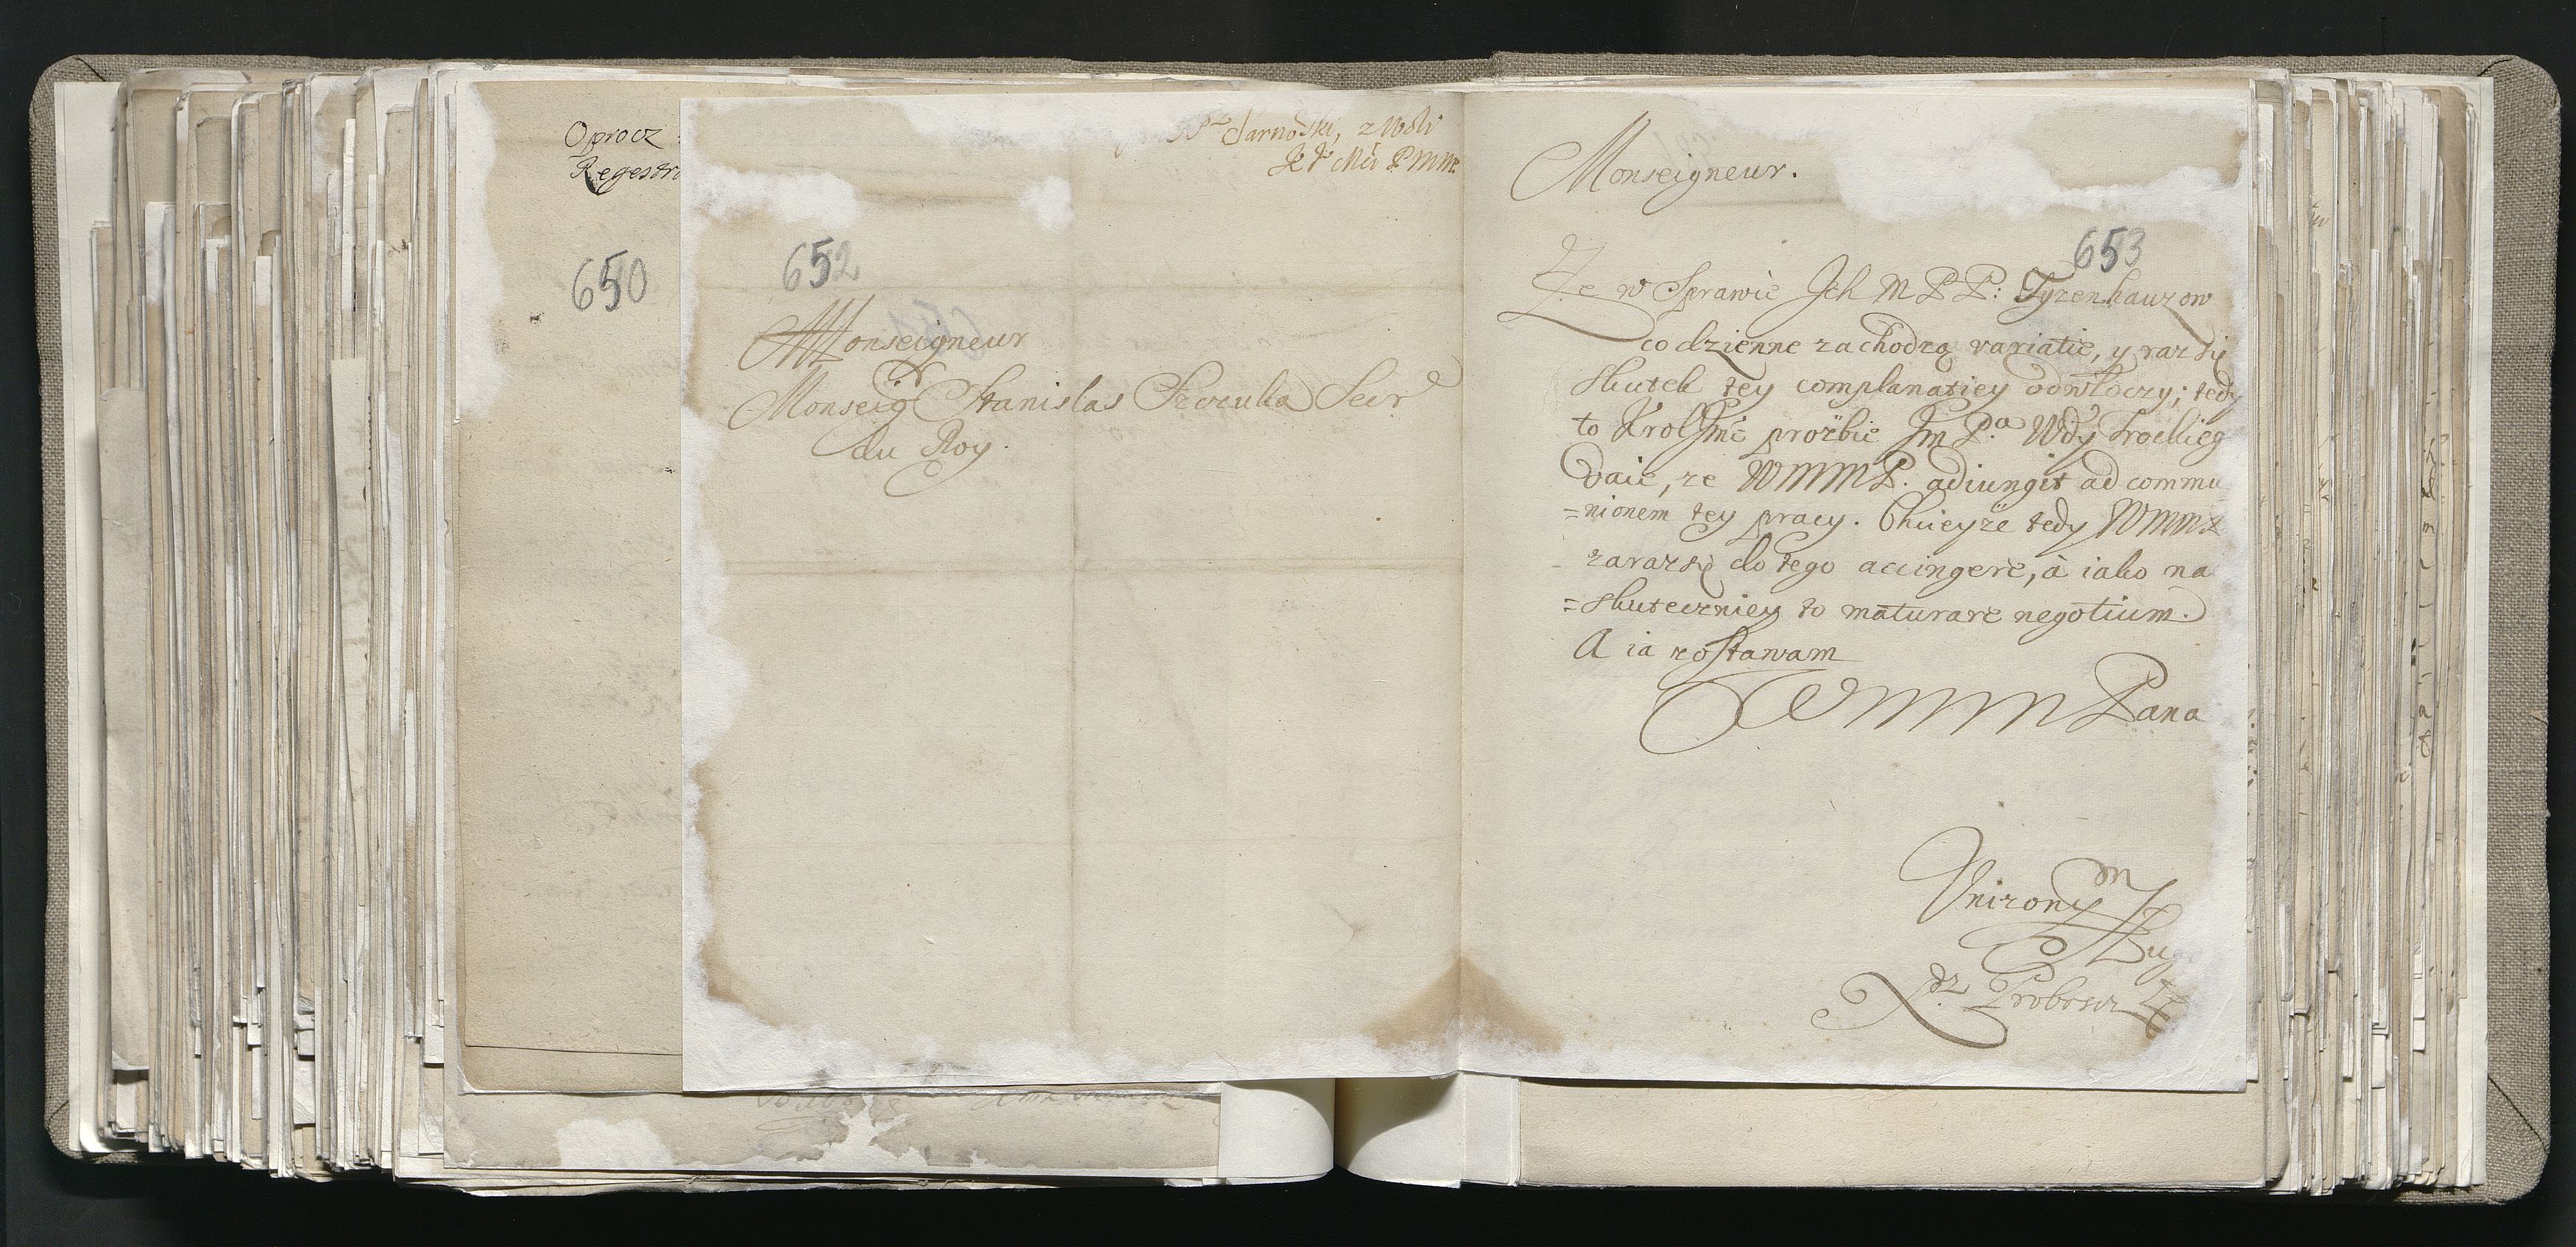 Oprocz
Regestr
650
Tarnowski, z Woli
652
Monseigneur
Monseig Stanislas Szczuka Secr
du Roy.
Monseigneur.
653
Ze w Sprawie Ich M P P: Tyzenhauzow
codzienne zachodzą variatie, y raz się
skutek tey complanatiey odwłoczy; tedy
to Krol Jmć prozbie Jm Pa Wdy Trockieg
daie, ze WMMMP. adiungit ad commu
=nionem tey pracy. Chcieyze tedy WMMM
zaraz się do tego accingere, à iako na
=skuteczniey to maturare negotium.
A ia zostawam
WMMM Pana
Vnizonym
Sługą
Xdz Proboscz